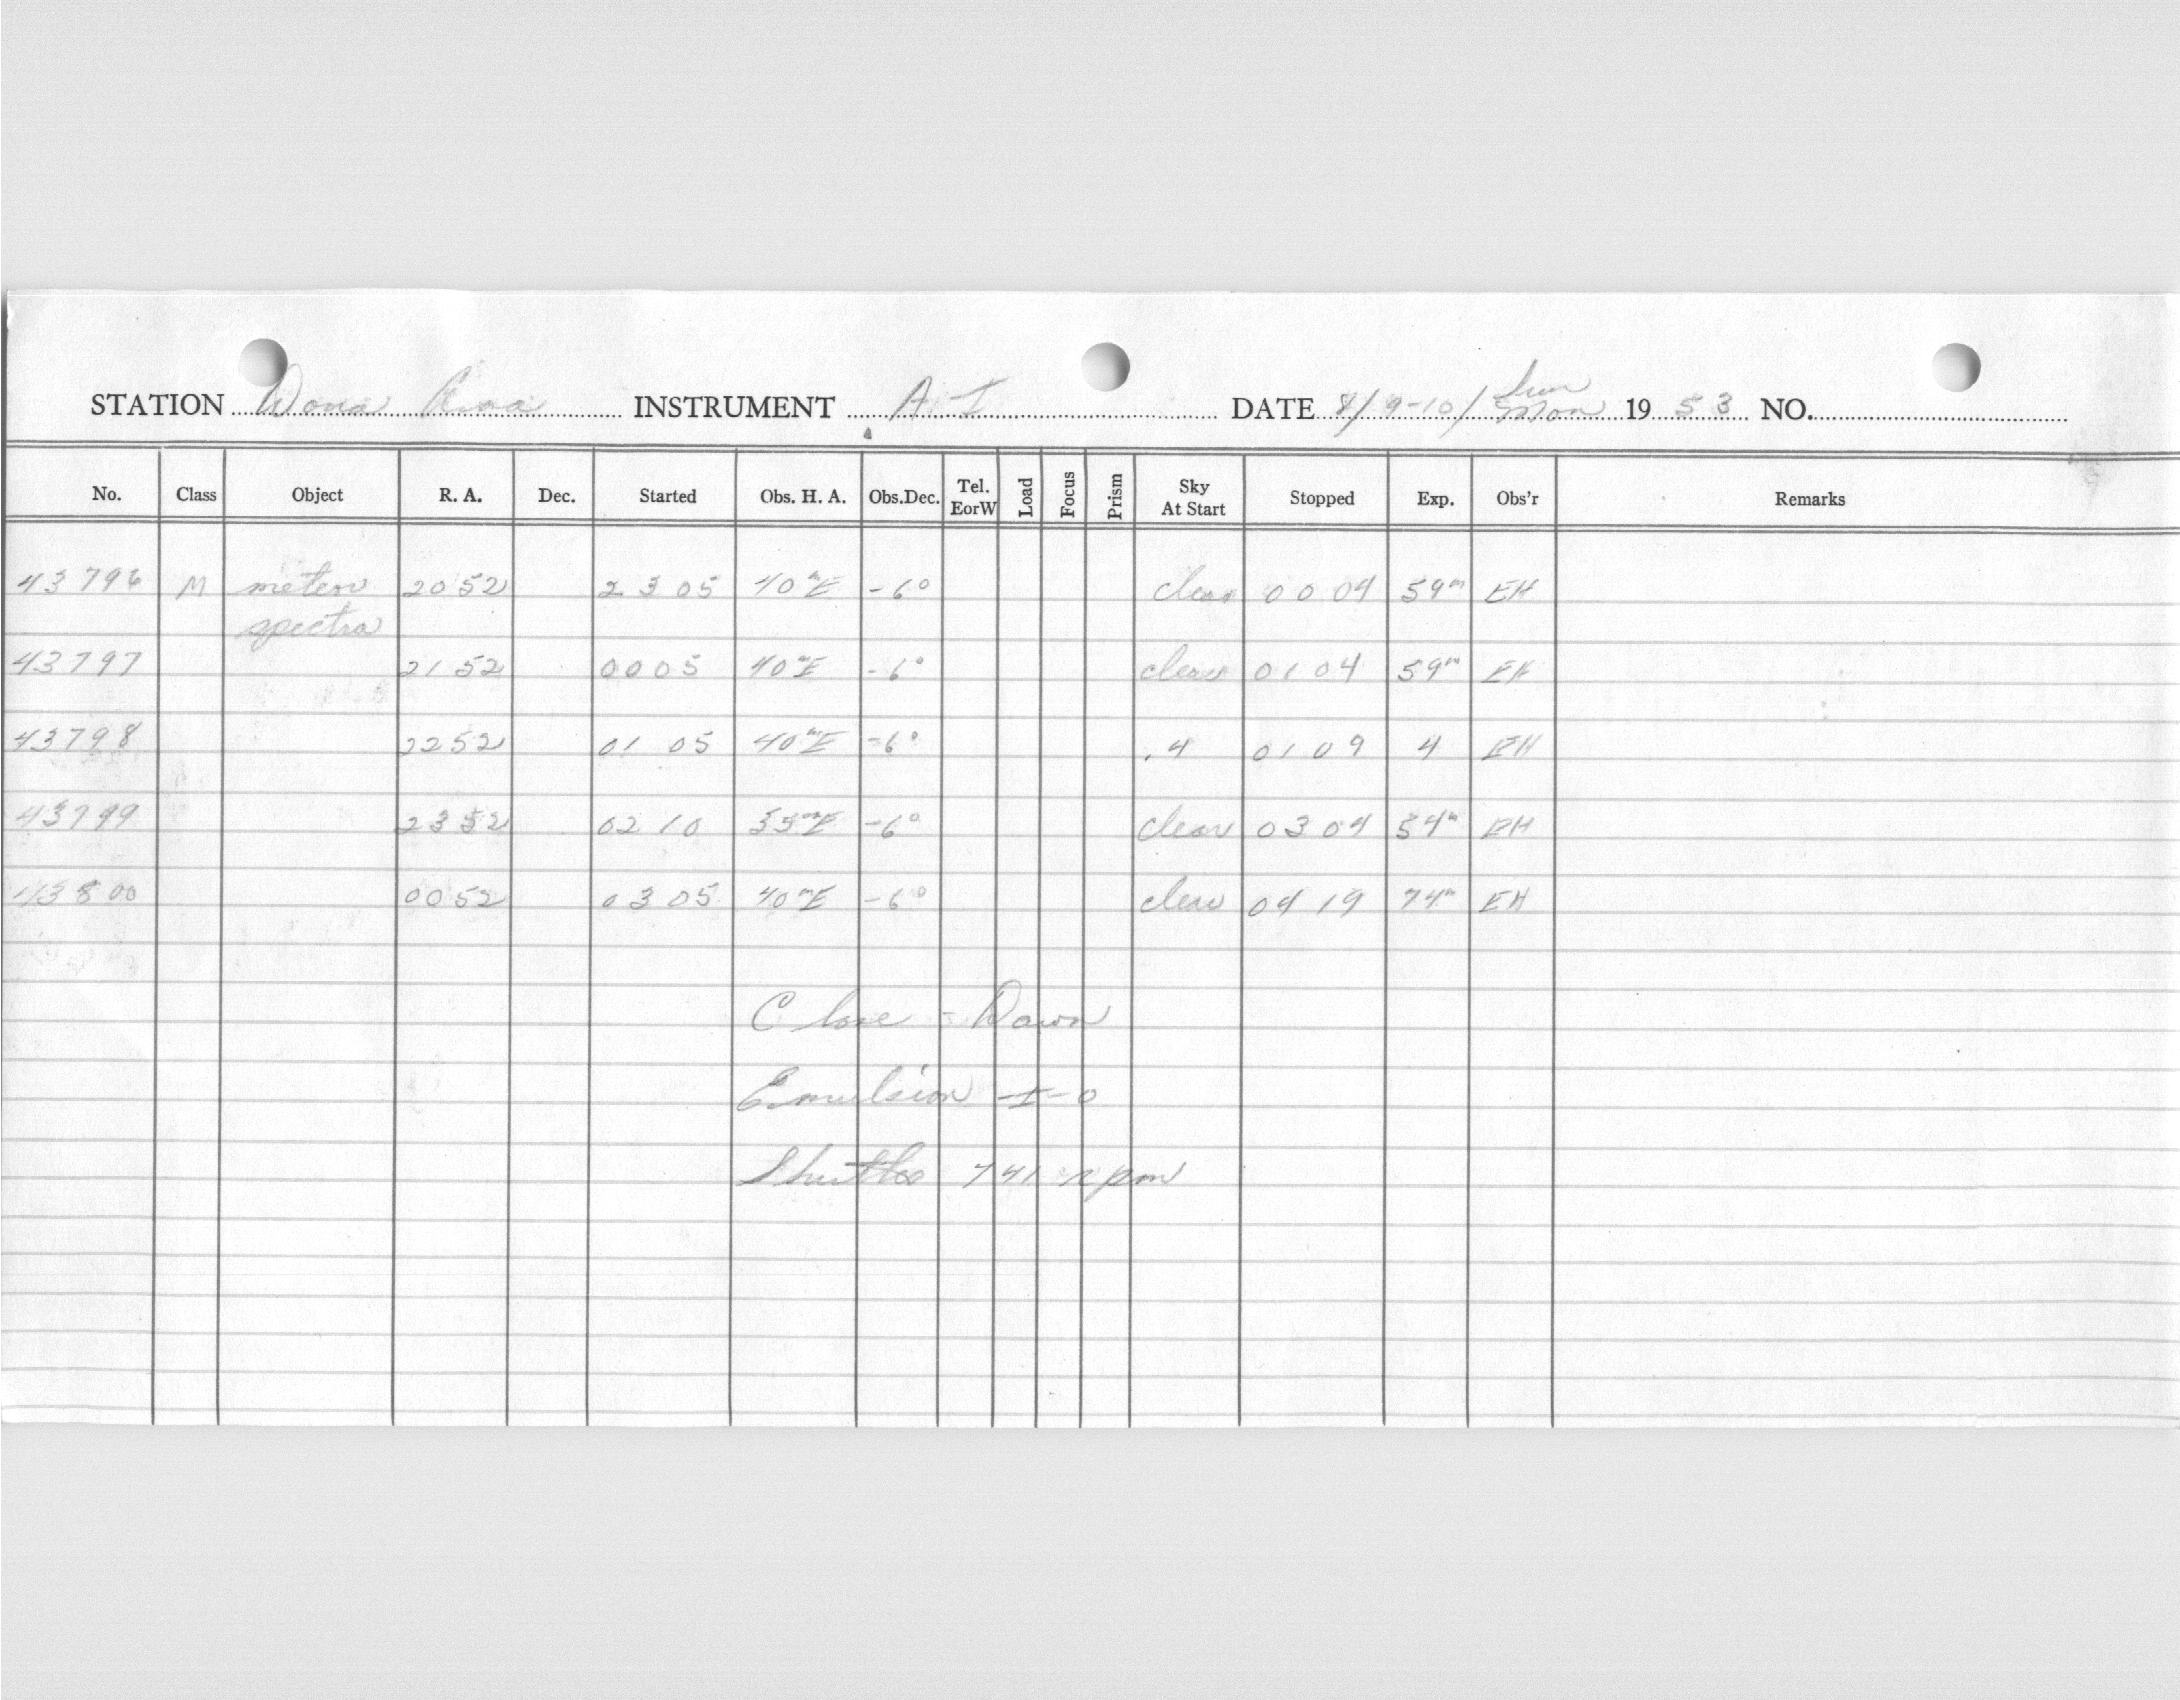 STATION Dona Ana INSTRUMENT AI DATE 8/9-10/ Sun Mon 1953 NO.
No. Class Object R. A. Dec. Started Obs. H. A. Obs.Dec. Tel. EorW Load Focus Prism Sky At Start Stopped Exp. Obs'r Remarks
43796 M meteor 2052 2305 40ᵐE -6° clear 0004 59ᵐ EH
spectra
43797 2152 0005 40ᵐE -6° clear 0104 59ᵐ EH
43798 2252 0105 40ᵐE -6° .4 0109 4 EH
43799 2352 0210 35ᵐE -6° clear 0304 54ᵐ EH
43800 0052 0305 40ᵐE -6° clear 0419 74ᵐ EH
Close - Dawn
Emulsion I-0
Shutter 741 rpm